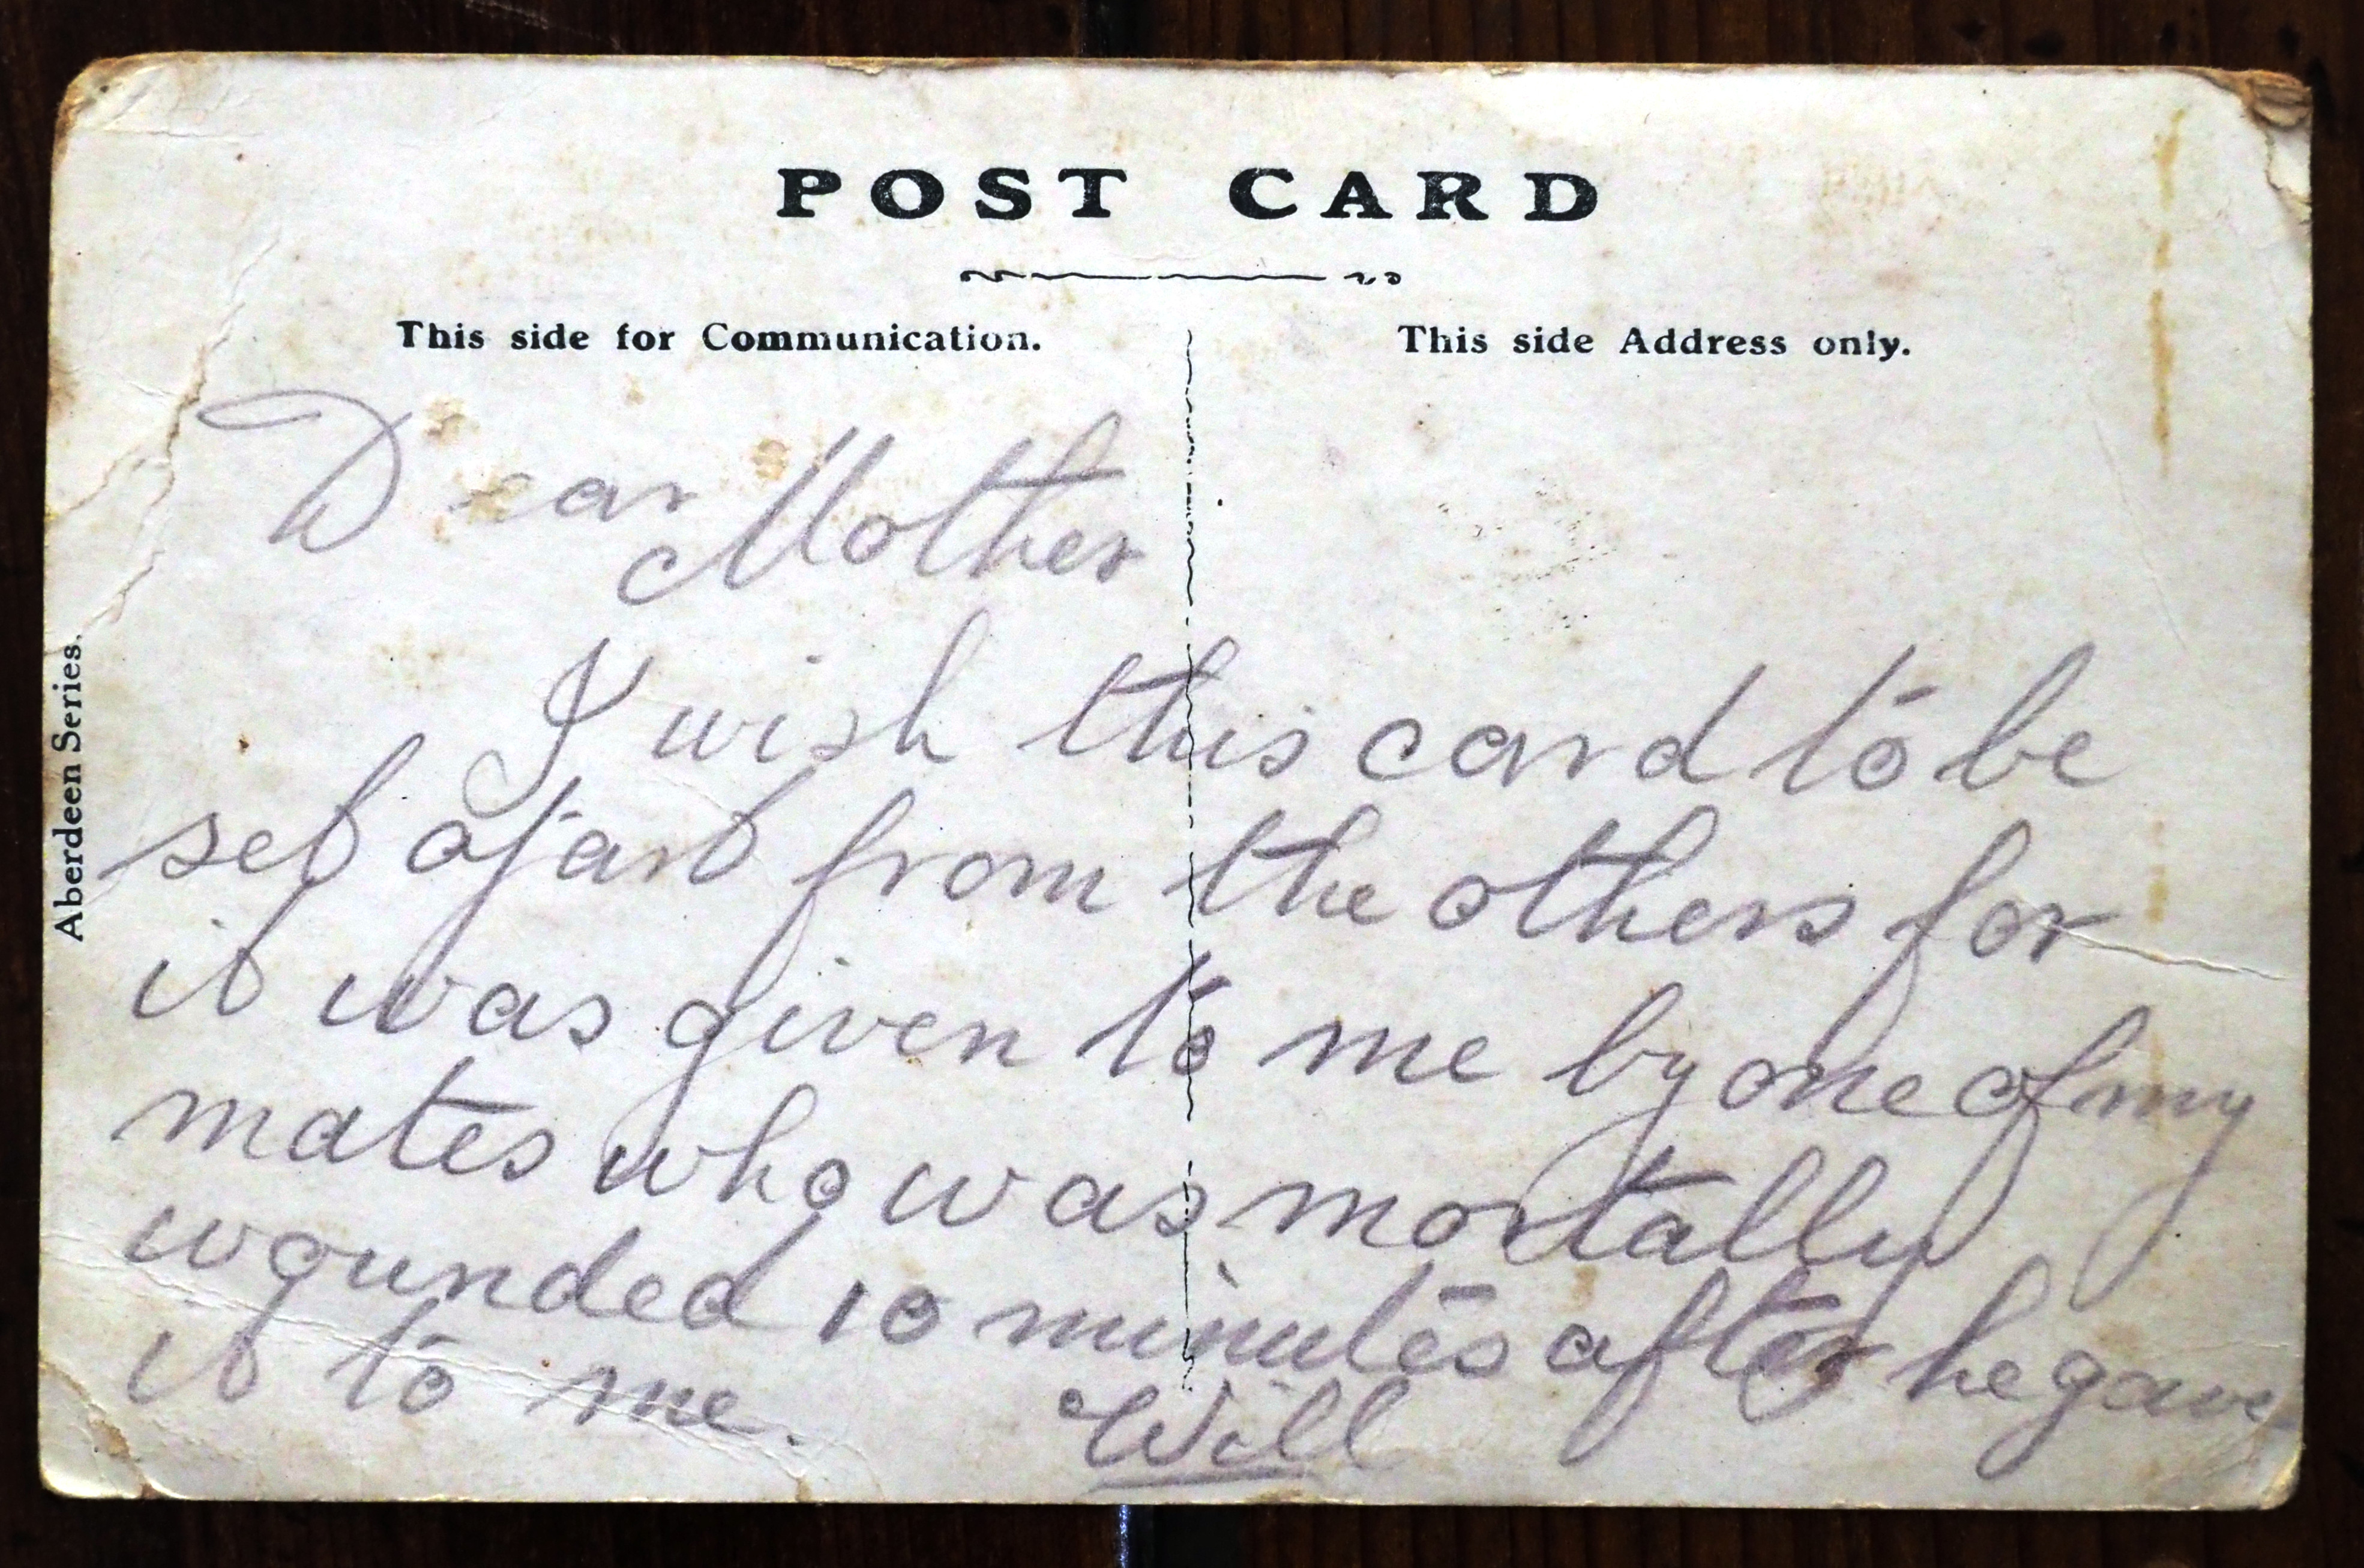 POST CARD
This side for Communication.
This side Address only.
Aberdeen Series.
Dear Mother
I wish this card to be
set apart from the others for
it was given to me by one of my
mates who was mortally
wounded 10 minutes after he gave
it to me.
Will